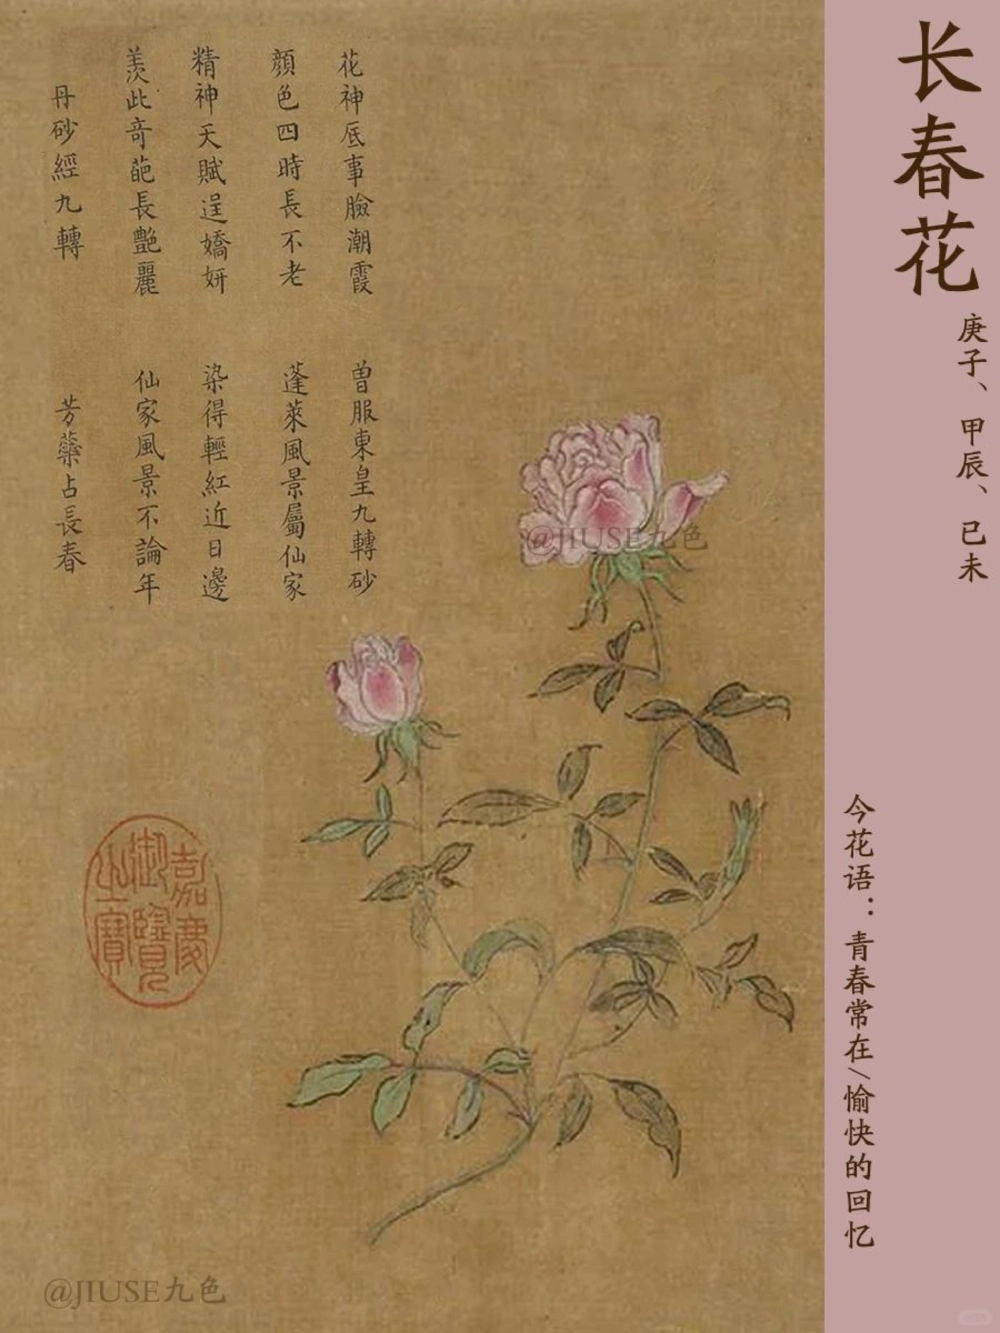 长春花
庚子、甲辰、己未
今花语：青春常在/愉快的回忆
花神底事臉潮霞
曾服東皇九轉砂
顔色四時長不老
蓬萊風景屬仙家
精神天賦逞嬌妍
染得輕紅近日邊
羨此奇葩長艷麗
仙家風景不論年
丹砂經九轉
芳蘂占長春
嘉慶
御覽
之寶
@JIUSE九色
@JIUSE九色